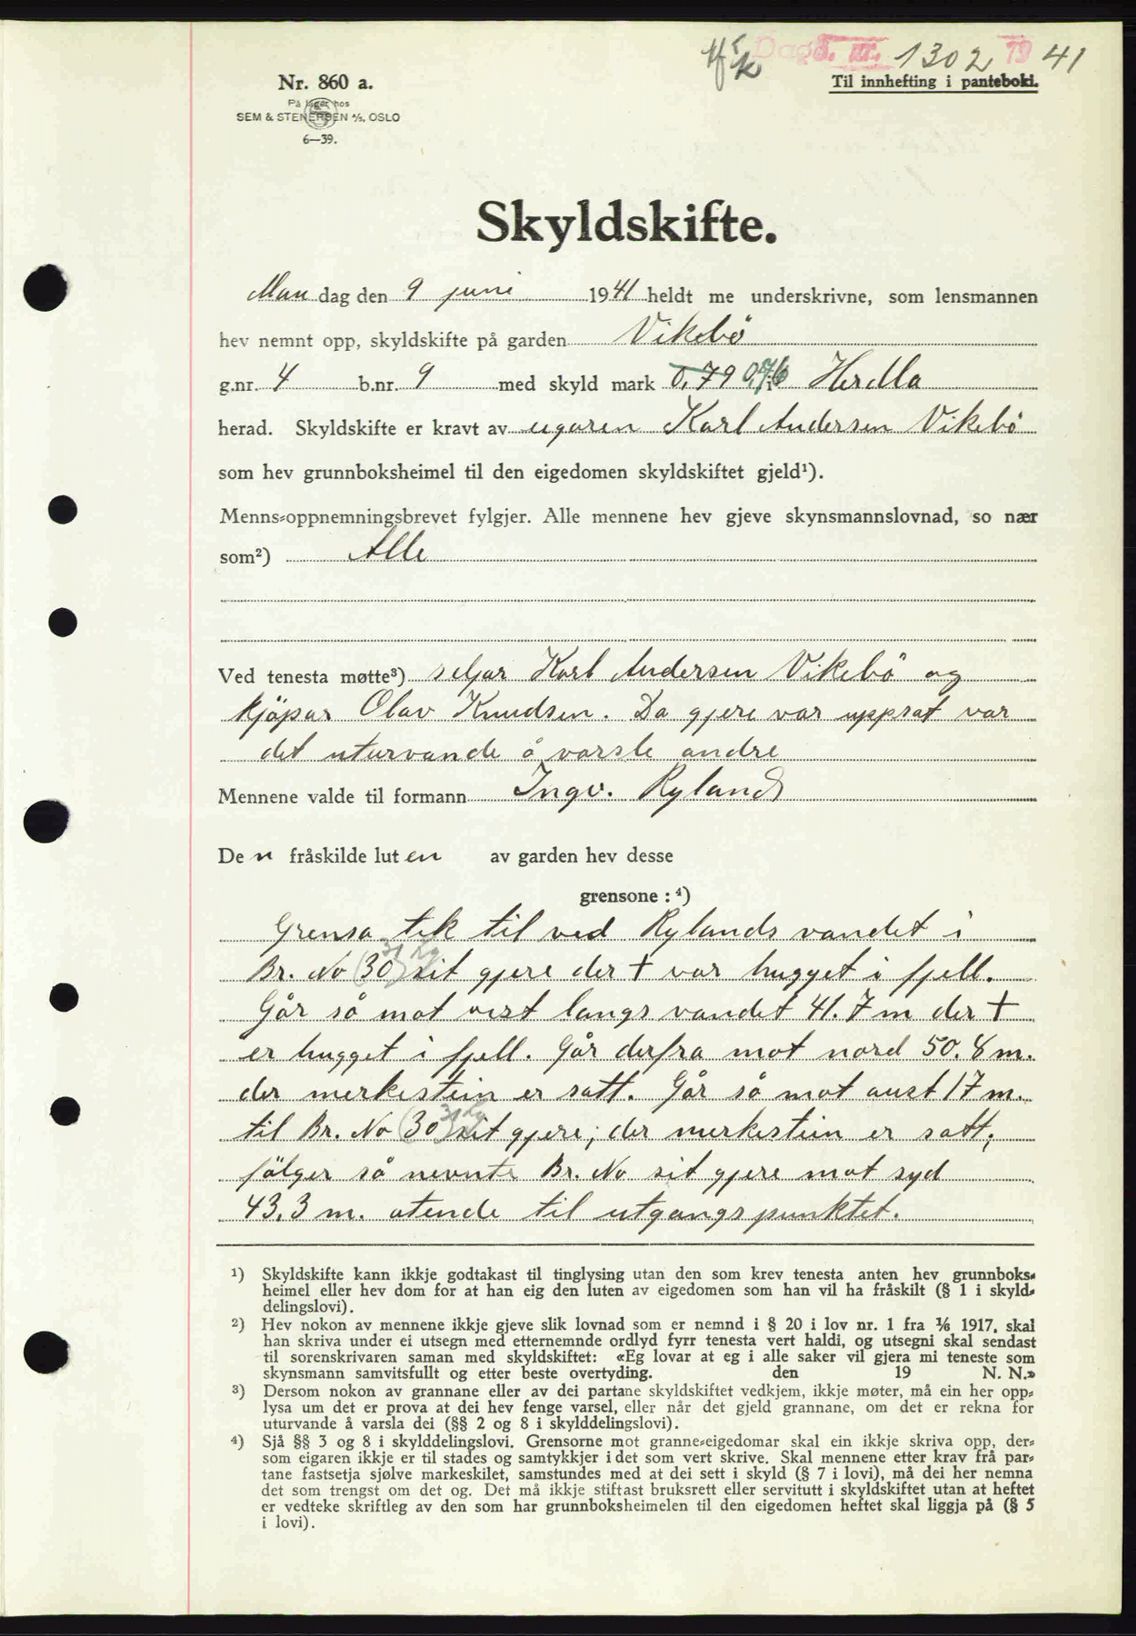 Dagb. nr. 1302 1941
Nr. 860 a.
Til innhefting i pantebok.
På lager hos
SEM & STENERSEN A/S, OSLO
6—39.
Skyldskifte.
Mandag den 9 juni 1941 heldt me underskrivne, som lensmannen
hev nemnt opp, skyldskifte på garden Vikebö
g.nr. 4 b.nr. 9 med skyld mark 0,79 0,76 i Herdla
herad. Skyldskifte er kravt av egaren Karl Andersen Vikebö
som hev grunnboksheimel til den eigedomen skyldskiftet gjeld¹).
Menns-oppnemningsbrevet fylgjer. Alle mennene hev gjeve skynsmannslovnad, so nær
som²) Alle
Ved tenesta møtte³) seljar Karl Andersen Vikebö og
kjöpar Olav Knudsen. Da gjere var uppsat var
det uturvande å varsle andre
Mennene valde til formann Ingv. Ryland
Den fråskilde luten av garden hev desse
grensone :⁴)
Grensa tek til ved Rylands vandet i
Br. No (30) 31 sit gjere der + var hugget i fjell.
Går så mot vest langs vandet 41.7 m der +
er hugget i fjell. Går derfra mot nord 50.8 m.
der merkestein er satt. Går så mot aust 17 m.
til Br. No (30) 31 sit gjere; der merkestein er satt;
fölger så nevnte Br. No sit gjere mot syd
43,3 m. atende til utgangspunktet.
¹) Skyldskifte kann ikkje godtakast til tinglysing utan den som krev tenesta anten hev grunnboks-
heimel eller hev dom for at han eig den luten av eigedomen som han vil ha fråskilt (§ 1 i skyld-
delingslovi).
²) Hev nokon av mennene ikkje gjeve slik lovnad som er nemnd i § 20 i lov nr. 1 fra ⅙ 1917, skal
han skriva under ei utsegn med etternemnde ordlyd fyrr tenesta vert haldi, og utsegni skal sendast
til sorenskrivaren saman med skyldskiftet: «Eg lovar at eg i alle saker vil gjera mi teneste som
skynsmann samvitsfullt og etter beste overtyding. den 19 N. N.»
³) Dersom nokon av grannane eller av dei partane skyldskiftet vedkjem, ikkje møter, må ein her opp-
lysa um det er prova at dei hev fenge varsel, eller når det gjeld grannane, om det er rekna for
uturvande å varsla dei (§§ 2 og 8 i skylddelingslovi).
⁴) Sjå §§ 3 og 8 i skylddelingslovi. Grensorne mot granne-eigedomar skal ein ikkje skriva opp, der-
som eigaren ikkje er til stades og samtykkjer i det som vert skrive. Skal mennene etter krav frå par-
tane fastsetja sjølve markeskilet, samstundes med at dei sett i skyld (§ 7 i lovi), må dei her nemna
det som trengst om det og. Det må ikkje stiftast bruksrett eller servitutt i skyldskiftet utan at heftet
er vedteke skriftleg av den som har grunnboksheimelen til den eigedomen heftet skal liggja på (§ 5
i lovi).